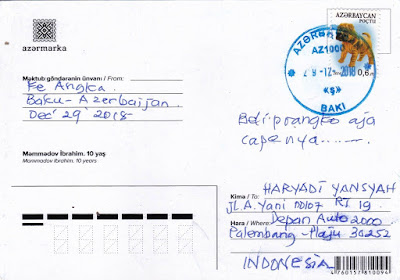 azərmarka
AZƏRBAYCAN
POÇTU
0,6
AZƏRBAYCAN
AZ1000
29-12 2018
«Ş»
BAKI
Məktub göndərənin ünvanı / From:
Ke Angka.
Baku - Azerbaijan.
Dec 29 2018
Məmmədov İbrahim, 10 yaş
Mammadov Ibrahim, 10 years
aja
capenya........
Kimə / To:
HARYADI YANSYAH
Jl. A. Yani 00107 RT 19
Hara / Where:
Depan Auto 2000
Palembang - Plaju 30252
INDONESIA
4760157810094